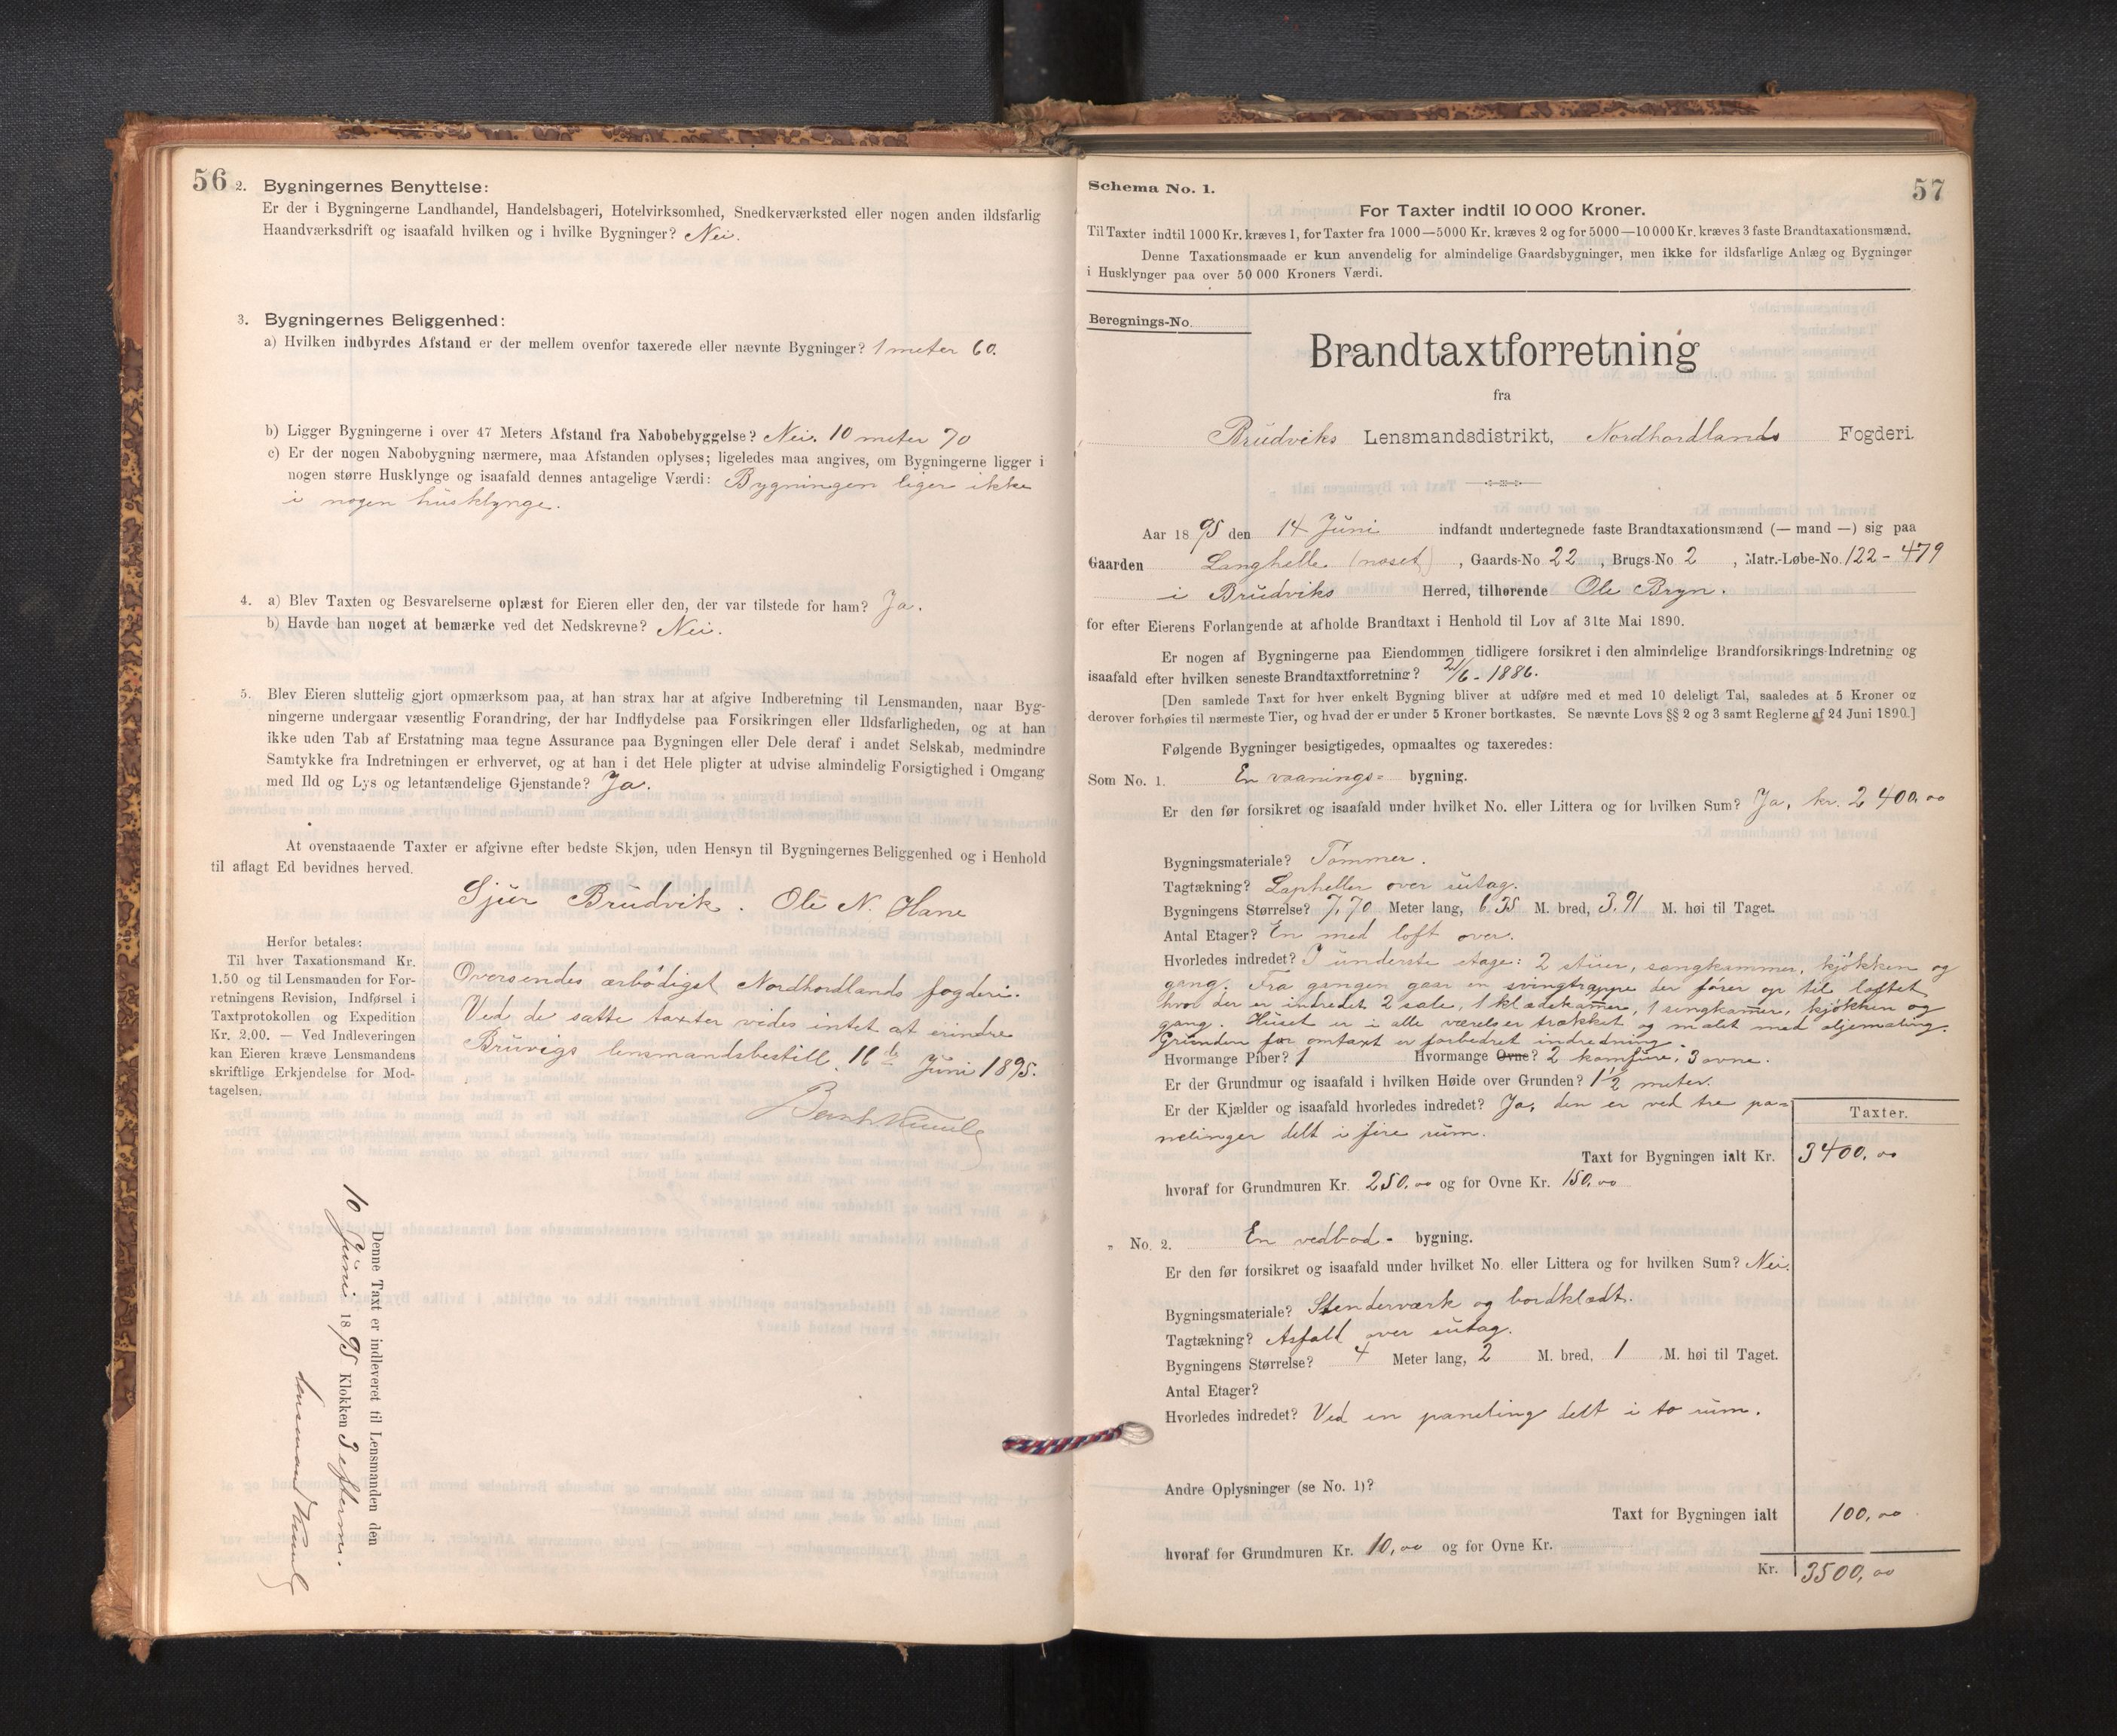 56
2. Bygningernes Benyttelse:
Er der i Bygningerne Landhandel, Handelsbageri, Hotelvirksomhed, Snedkerværksted eller nogen anden ildsfarlig
Haandværksdrift og isaafald hvilken og i hvilke Bygninger? Nei.
3. Bygningernes Beliggenhed:
a) Hvilken indbyrdes Afstand er der mellem ovenfor taxerede eller nævnte Bygninger? 1 meter 60.
b) Ligger Bygningerne i over 47 Meters Afstand fra Nabobebyggelse? Nei. 10 meter 70
c) Er der nogen Nabobygning nærmere, maa Afstanden oplyses; ligeledes maa angives, om Bygningerne ligger i
nogen større Husklynge og isaafald dennes antagelige Værdi: Bygningen liger ikke
i nogen husklynge.
4. a) Blev Taxten og Besvarelserne oplæst for Eieren eller den, der var tilstede for ham? Ja.
b) Havde han noget at bemærke ved det Nedskrevne? Nei.
5. Blev Eieren sluttelig gjort opmærksom paa, at han strax har at afgive Indberetning til Lensmanden, naar Byg-
ningerne undergaar væsentlig Forandring, der har Indflydelse paa Forsikringen eller Ildsfarligheden, og at han
ikke uden Tab af Erstatning maa tegne Assurance paa Bygningen eller Dele deraf i andet Selskab, medmindre
Samtykke fra Indretningen er erhvervet, og at han i det Hele pligter at udvise almindelig Forsigtighed i Omgang
med Ild og Lys og letantændelige Gjenstande? Ja.
At ovenstaaende Taxter er afgivne efter bedste Skjøn, uden Hensyn til Bygningernes Beliggenhed og i Henhold
til aflagt Ed bevidnes herved.
Sjur Brudvik. Ole N. Hane
Herfor betales:
Til hver Taxationsmand Kr.
1.50 og til Lensmanden for For-
retningens Revision, Indførsel i
Taxtprotokollen og Expedition
Kr. 2.00. — Ved Indleveringen
kan Eieren kræve Lensmandens
skriftlige Erkjendelse for Mod-
tagelsen.
Oversendes ærbødigst Nordhordlands fogderi.
Ved de satte taxter vides intet at erindre
Bruvigs lensmandsbestill. 16de Juni 1895.
Denne Taxt er indleveret til Lensmanden den
16 Juni 1895 Klokken 3 efterm.
lensmand
57
Schema No. 1.
For Taxter indtil 10 000 Kroner.
Til Taxter indtil 1000 Kr. kræves 1, for Taxter fra 1000—5000 Kr. kræves 2 og for 5000—10 000 Kr. kræves 3 faste Brandtaxationsmænd.
Denne Taxationsmaade er kun anvendelig for almindelige Gaardsbygninger, men ikke for ildsfarlige Anlæg og Bygninger
i Husklynger paa over 50 000 Kroners Værdi.
Beregnings-No.
Brandtaxtforretning
fra
Brudviks Lensmandsdistrikt, Nordhordlands Fogderi.
Aar 1895 den 14 Juni indfandt undertegnede faste Brandtaxationsmænd (— mand —) sig paa
Gaarden Langhelle (noset), Gaards-No 22, Brugs-No 2, Matr.-Løbe-No. 122 - 479
i Brudviks Herred, tilhørende Ole Bryn.
for efter Eierens Forlangende at afholde Brandtaxt i Henhold til Lov af 31te Mai 1890.
Er nogen af Bygningerne paa Eiendommen tidligere forsikret i den almindelige Brandforsikrings-Indretning og
isaafald efter hvilken seneste Brandtaxtforretning? 21/6 - 1886.
[Den samlede Taxt for hver enkelt Bygning bliver at udføre med et med 10 deleligt Tal, saaledes at 5 Kroner og
derover forhøies til nærmeste Tier, og hvad der er under 5 Kroner bortkastes. Se nævnte Lovs §§ 2 og 3 samt Reglerne af 24 Juni 1890.]
Følgende Bygninger besigtigedes, opmaaltes og taxeredes:
Som No. 1. En vaanings- bygning.
Er den før forsikret og isaafald under hvilket No. eller Littera og for hvilken Sum? Ja, kr. 2400,00
Bygningsmateriale? Tømmer.
Tagtækning? Lapheller over sutag.
Bygningens Størrelse? 7,70 Meter lang, 6,35 M. bred, 3,91 M. høi til Taget.
Antal Etager? En med loft over.
Hvorledes indredet? I underste etage: 2 stuer, sengkammer, kjøkken og
gang. Fra gangen gaar en svingtrappe der fører op til loftet
hvor der er indredet 2 sale, 1 klædekamer, 1 sengkamer, kjøkken og
gang. Huset er i alle værelser trækket og malet med oljemaling.
Grunden for omtaxt er forbedret indredning.
Hvormange Piber? 1 Hvormange Ovne? 2 komfure, 3 ovne.
Er der Grundmur og isaafald i hvilken Høide over Grunden? 1 1/2 meter.
Er der Kjælder og isaafald hvorledes indredet? Ja, den er ved tre pa-
nelinger delt i fire rum.
Taxter.
Taxt for Bygningen ialt Kr. 3400,00
hvoraf for Grundmuren Kr. 250,00 og for Ovne Kr. 150,00
„ No. 2. En vedbod- bygning.
Er den før forsikret og isaafald under hvilket No. eller Littera og for hvilken Sum? Nei.
Bygningsmateriale? Stenderværk og bordklædt.
Tagtækning? Asfalt over sutag.
Bygningens Størrelse? 4 Meter lang, 2 M. bred, 1 M. høi til Taget.
Antal Etager?
Hvorledes indredet? Ved en paneling delt i to rum.
Andre Oplysninger (se No. 1)?
Taxt for Bygningen ialt 100,00
hvoraf for Grundmuren Kr. 10,00 og for Ovne Kr.
Kr. 3500,00